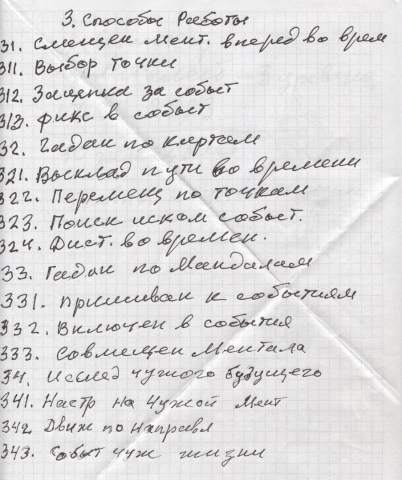 3. Способы Работы
31. Смещен мент. вперед во врем
311. Выбор точки
312. Зацепка за событ
313. фикс в событ
32. Гадан по картам
321. Высклад пути во времени
322. Перемещ по точкам
323. Поиск иском событ.
324. Дист. во времен.
33. Гадан по Мандалам
331. Пришиван к событиям
332. Включен в события
333. Совмещен Ментала
34. Исслед чужого будущего
341. Настр на чужой мент
342 Движ по направл
343. Событ чуж жизни